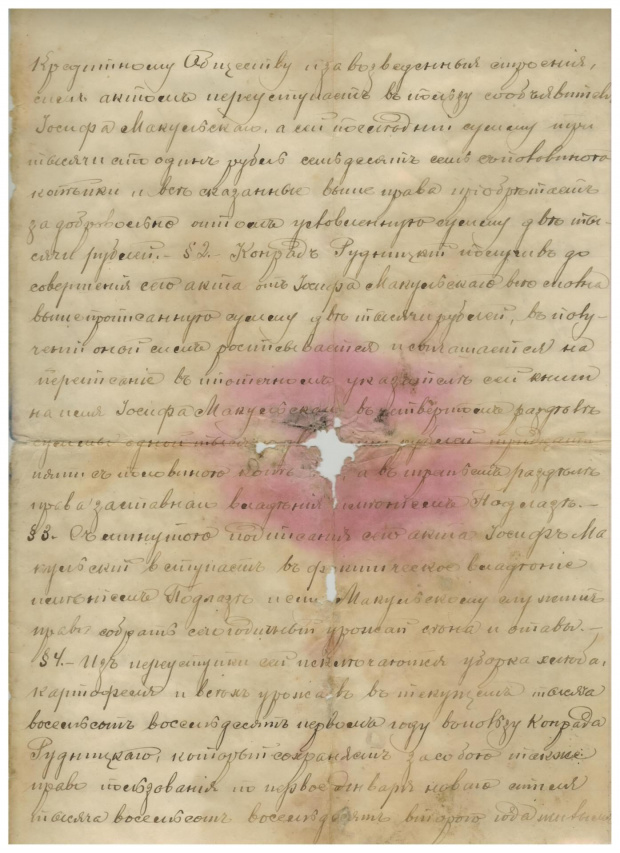 Кредитному Обществу и за возведенныя строенія,
симъ актомъ переуступаетъ въ пользу сообъявителя
Іосифа Макульскаго, а сей последній сумму три
тысячи сто одинъ рубль семьдесятъ семь съ половиною
копѣйки и всѣ сказанные выше права пріобрѣтаетъ
за добровольно уговоренную сумму двѣ ты-
сячи рублей.- §2.- Конрадъ Рудницкій получивъ до
совершенія сего акта отъ Іосифа Макульскаго всю сполна
выше прописанную сумму двѣ тысячи рублей, въ полу-
ченіи оной симъ росписывается и соглашается на
переписаніе въ ипотечномъ указателѣ сей книги
на имя Іосифа Макульскаго въ четвертомъ раздѣлѣ
суммы одной рублей тридцати
пяти съ половиною копѣ и въ третьемъ раздѣлѣ
права заставнаго владѣнія имѣніемъ Подлазъ.-
§3.- Съ минутою подписанія сего акта Іосифъ Ма
кульскій вступаетъ въ фактическое владѣніе
имѣніемъ Подлазъ и ему Макульскому служитъ
право собрать сегодичный урожай сѣна и отавы.-
§4.- Изъ переуступки сей исключаются уборка хлѣба,
картофеля и всѣхъ урожаевъ въ текущемъ тысяча
восемьсотъ восемьдесятъ первомъ году въ пользу Конрада
Рудницкаго, который сохраняетъ за собою также
право пользованія по первое Января новаго стиля
тысяча восемьсотъ восемьдесятъ второго года